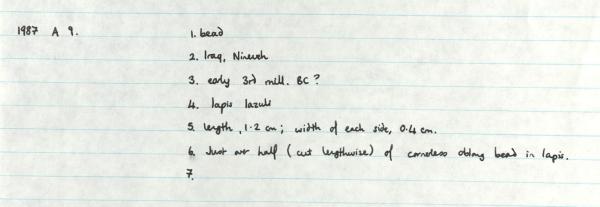 1987 A 9. 1. bead
2. Iraq, Nineveh
3. early 3rd mill. BC?
4. lapis lazuli
5. length, 1.2 cm; width of each side, 0.4 cm.
6. Just over half (cut lengthwise) of cornerless oblong bead in lapis.
7.